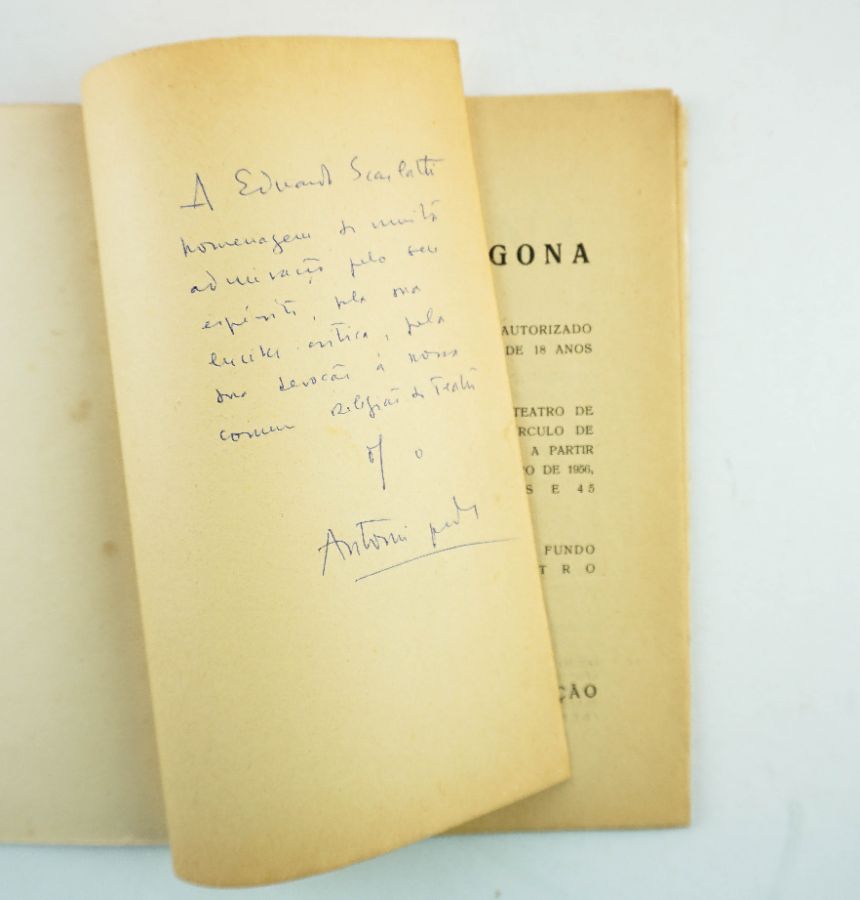 A Eduardo Scarlatti
homenagem de muita
admiração pelo seu
espírito, pela sua
crítica, pela
sua devoção à nossa
comum Religião do Teatro
o
António Pedro
GONA
AUTORIZADO
DE 18 ANOS
TEATRO DE
RCULO DE
A PARTIR
O DE 1956,
S E 45
FUNDO
TRO
ÇÃO